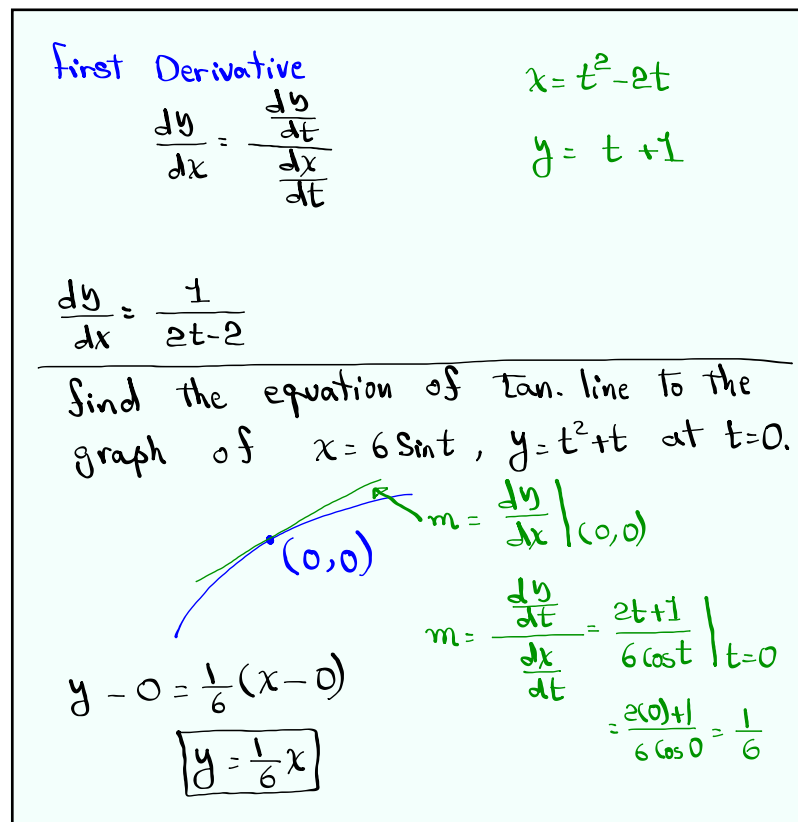 first Derivative
dy/dx = (dy/dt)/(dx/dt)
x = t² - 2t
y = t + 1
dy/dx = 1/(2t-2)
find the equation of tan. line to the
graph of x = 6 Sin t , y = t² + t at t=0.
(0,0)
m = dy/dx |(0,0)
m = (dy/dt)/(dx/dt) = (2t+1)/(6 cos t) | t=0
= (2(0)+1)/(6 Cos 0) = 1/6
y - 0 = 1/6 (x - 0)
y = 1/6 x